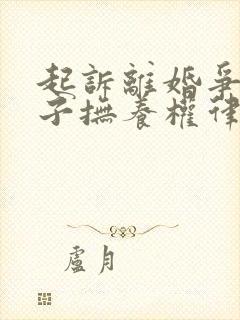 起訴離婚爭
子撫養權律
盧月